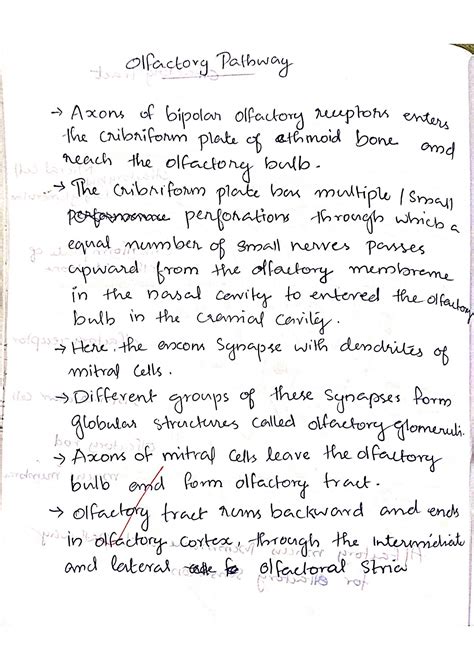 Olfactory Pathway
→ Axons of bipolar olfactory receptors enters
the cribriform plate of ethmoid bone and
reach the olfactory bulb.
→ The cribriform plate has multiple / small
performance perforations through which a
equal number of small nerves passes
upward from the olfactory membrane
in the nasal cavity to entered the olfactory
bulb in the cranial cavity.
→ Here the axons synapse with dendrites of
mitral cells.
→ Different groups of these synapses form
globular structures called olfactory glomeruli.
→ Axons of mitral cells leave the olfactory
bulb and form olfactory tract.
→ Olfactory tract runs backward and ends
in olfactory cortex, through the intermidiate
and lateral olfactoral stria